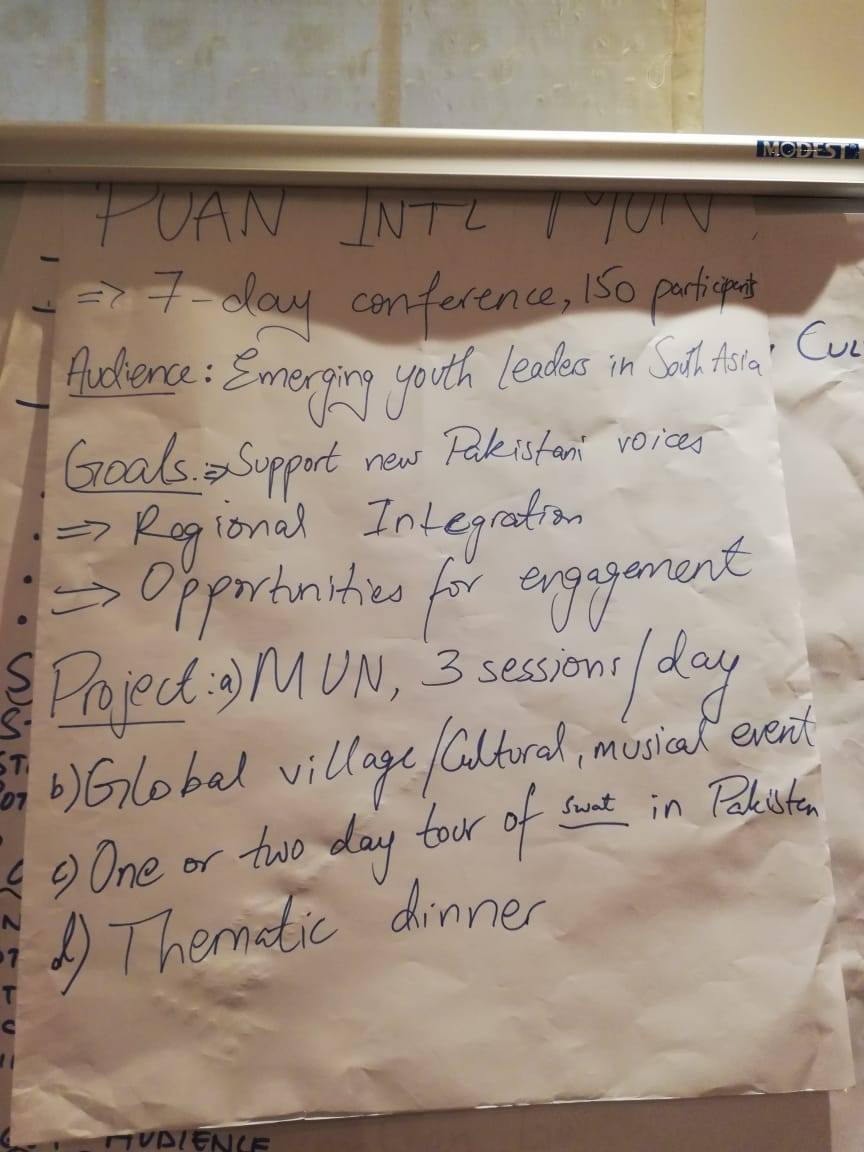 MODEST
PUAN INTL MUN
=> 7-day conference, 150 participants
Audience: Emerging youth leaders in South Asia
CUL
Goals.=> Support new Pakistani voices
=> Regional Integration
=> Opportunities for engagement
Project: a) MUN, 3 sessions/day
b) Global village/Cultural, musical event
c) One or two day tour of Swat in Pakistan
d) Thematic dinner
AUDIENCE